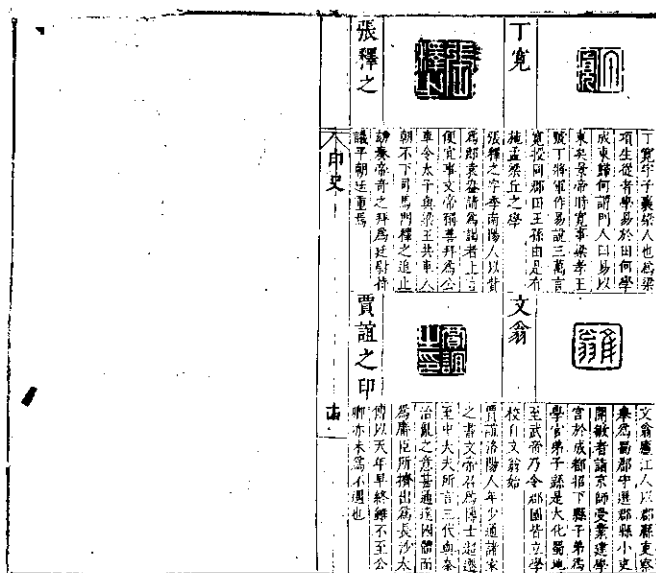 丁寬
丁寬字子襄梁人也爲梁
項生從者學易於田何學
成東歸何謂門人曰易以
東矣景帝時寬事梁孝王
號丁將軍作易說三萬言
寬授同郡田王孫由是有
施孟梁丘之學
張釋之
張釋之字季南陽人以貲
爲郎袁盎請爲謁者上言
便宜事文帝稱善拜爲公
車令太子與梁王共車入
朝不下司馬門釋之追止
劾奏帝奇之拜爲廷尉持
議平朝廷重焉
文翁
文翁廬江人以郡縣吏察
舉爲蜀郡守選郡縣小吏
開敏者詣京師受業建學
宮於成都招下縣子弟爲
學官弟子繇是大化蜀地
至武帝乃令郡國皆立學
校自文翁始
賈誼之印
賈誼洛陽人年少通諸家
之書文帝召爲博士超遷
至中大夫所言三代與秦
治亂之意甚通達國體而
爲庸臣所擠出爲長沙太
傅以天年早終雖不至公
卿亦未爲不遇也
印史